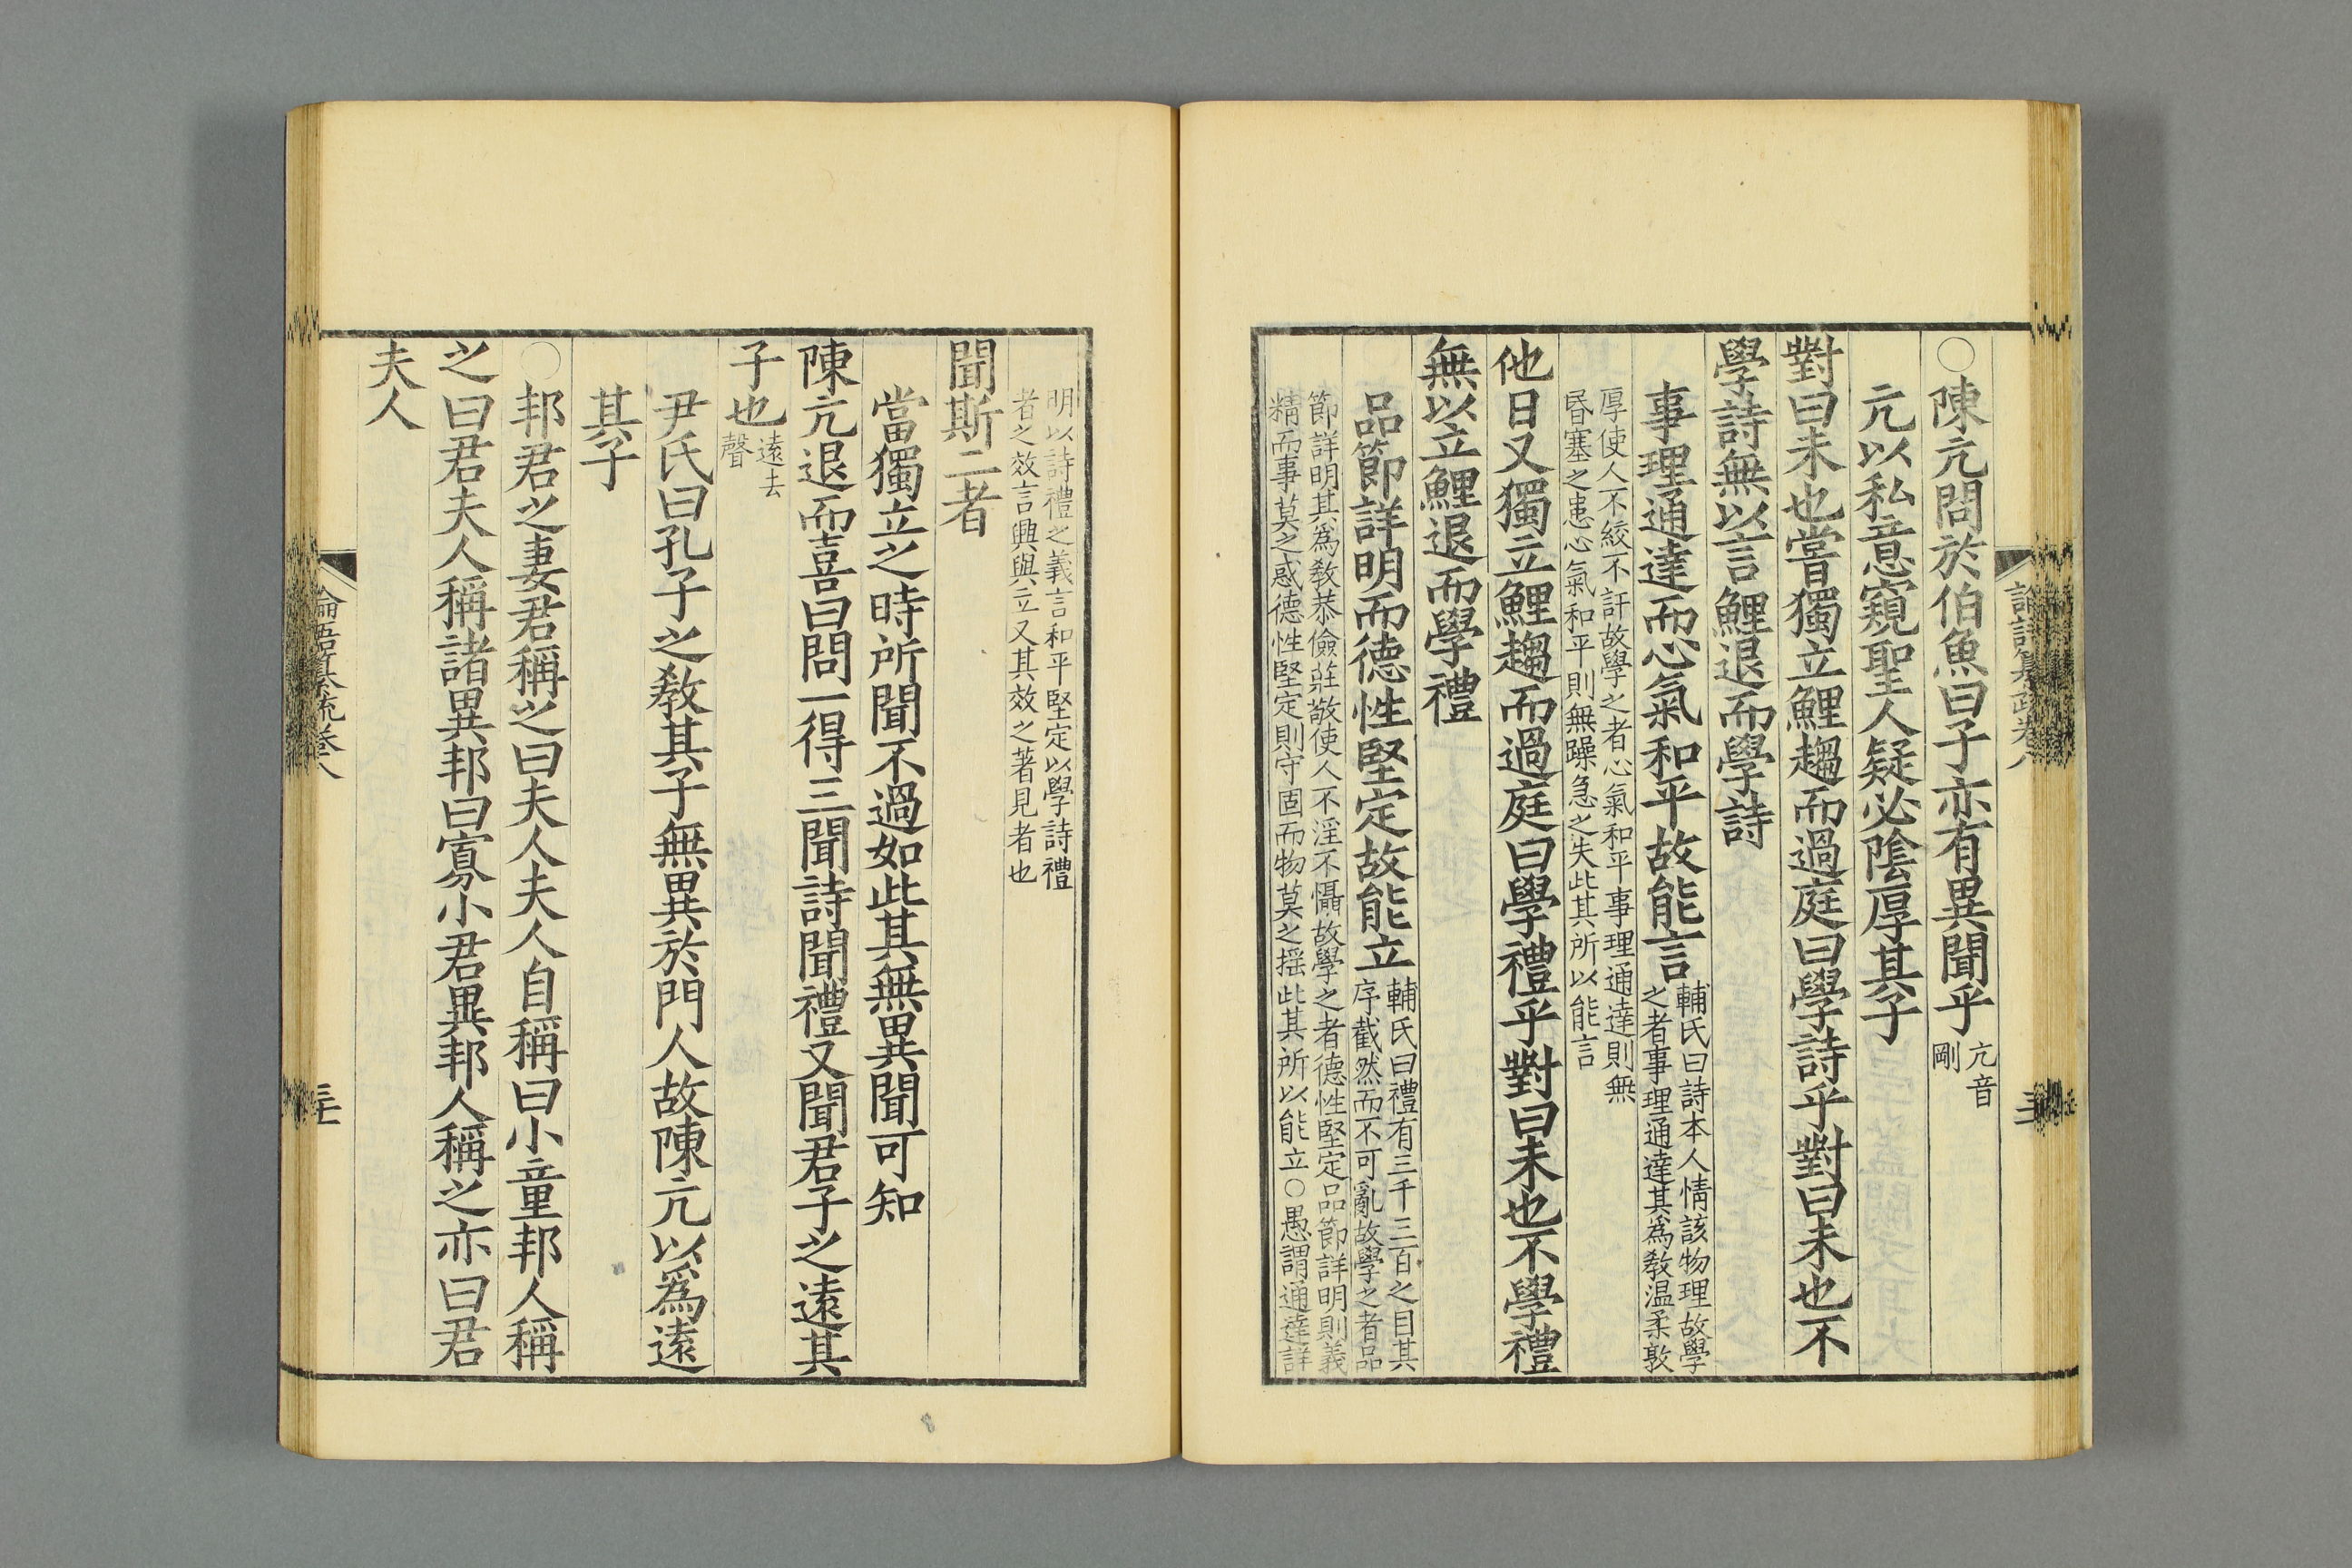 ○陳亢問於伯魚曰子亦有異聞乎亢音
剛
亢以私意窺聖人疑必陰厚其子
對曰未也嘗獨立鯉趨而過庭曰學詩乎對曰未也不
學詩無以言鯉退而學詩
事理通達而心氣和平故能言輔氏曰詩本人情該物理故學
之者事理通達其爲敎温柔敦
厚使人不絞不訐故學之者心氣和平事理通達則無
昬塞之患心氣和平則無躁急之失此其所以能言
他日又獨立鯉趨而過庭曰學禮乎對曰未也不學禮
無以立鯉退而學禮
品節詳明而德性堅定故能立輔氏曰禮有三千三百之目其
序截然而不可亂故學之者品
節詳明其爲敎恭儉莊敬使人不淫不懾故學之者德性堅定品節詳明則義
精而事莫之惑德性堅定則守固而物莫之揺此其所以能立○愚謂通達詳
明以詩禮之義言和平堅定以學詩禮
者之效言興與立又其效之著見者也
聞斯二者
當獨立之時所聞不過如此其無異聞可知
陳亢退而喜曰問一得三聞詩聞禮又聞君子之遠其
子也遠去
聲
尹氏曰孔子之敎其子無異於門人故陳亢以爲遠
其子
○邦君之妻君稱之曰夫人夫人自稱曰小童邦人稱
之曰君夫人稱諸異邦曰寡小君異邦人稱之亦曰君
夫人
論語纂疏卷八